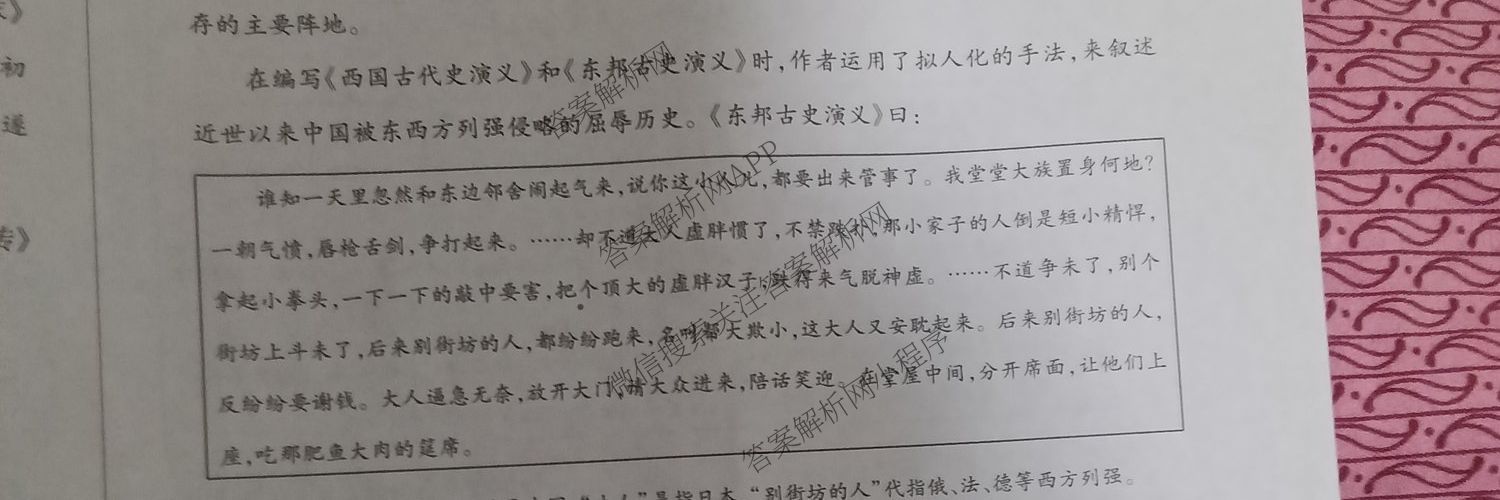 》
初
遂
传》
存的主要阵地。
在编写《西国古代史演义》和《东邦古史演义》时,作者运用了拟人化的手法,来叙述
近世以来中国被东西方列强侵略的屈辱历史。《东邦古史演义》曰:
谁知一天里忽然和东边邻舍闹起气来,说你这小,都要出来管事了。我堂堂大族置身何地?
一朝气愤,唇枪舌剑,争打起来。……却不道大人虚胖惯了,不禁跌扑,那小家子的人倒是短小精悍,
拿起小拳头,一下一下的敲中要害,把个顶大的虚胖汉子,跌得来气脱神虚。……不道争未了,别个
街坊上斗未了,后来别街坊的人,都纷纷跑来,名叫帮大欺小,这大人又安耽起来。后来别街坊的人,
反纷纷要谢钱。大人逼急无奈,放开大门,请大众进来,陪话笑迎。在堂屋中间,分开席面,让他们上
座,吃那肥鱼大肉的筵席。
是指日本,“别街坊的人”代指俄、法、德等西方列强。
答案解析网
答案解析网APP
微信搜索关注答案解析网
答案解析网小程序